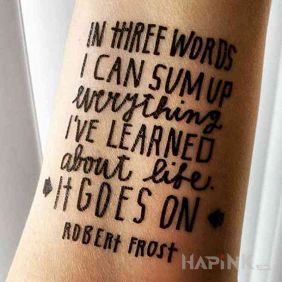 IN THREE WORDS
I CAN SUM UP
everything
I'VE LEARNED
about life.
IT GOES ON
ROBERT FROST
HAPINK